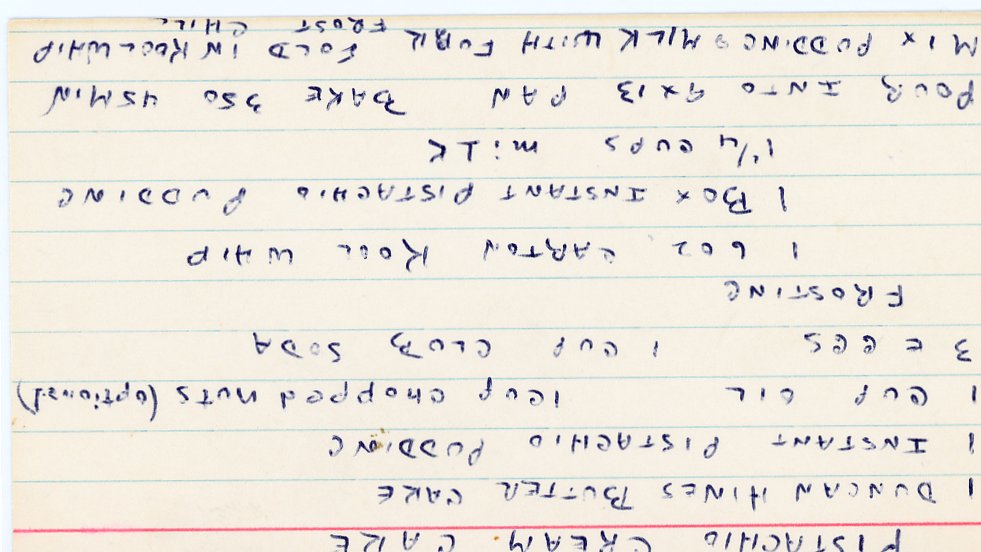 PISTACHIO CREAM CAKE
1 DUNCAN HINES BUTTER CAKE
1 INSTANT PISTACHIO PUDDING
1 CUP OIL 1 CUP CHOPPED NUTS (optional)
3 EGGS 1 CUP CLUB SODA
FROSTING
1 6 OZ. CARTON KOOL WHIP
1 BOX INSTANT PISTACHIO PUDDING
1 1/4 CUPS MILK
POUR INTO 9x13 PAN BAKE 350 45MIN
MIX PUDDING & MILK WITH FORK FOLD IN KOOL WHIP
FROST CHILL